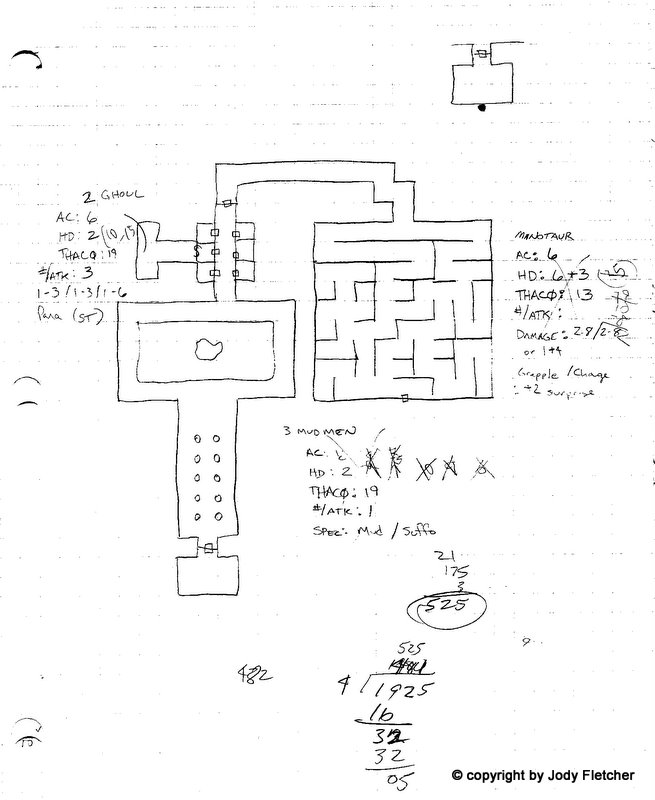 2 GHOUL
AC: 6
HD: 2 (10, 15)
THACØ: 19
#/ATK: 3
1-3/1-3/1-6
Para (ST)
S
MANOTAUR
AC: 6
HD: 6+3 (15)
THACØ: 13
#/ATK:
DAMAGE: 2-8/2-8
or 1+4
Grapple / Charge
: +2 surprise
3 MUDMEN
AC:
HD: 2
THACØ: 19
#/ATK: 1
SPEC: Mud / Suffo
21
175
3
525
482
525
4 1925
16
32
32
05
© copyright by Jody Fletcher